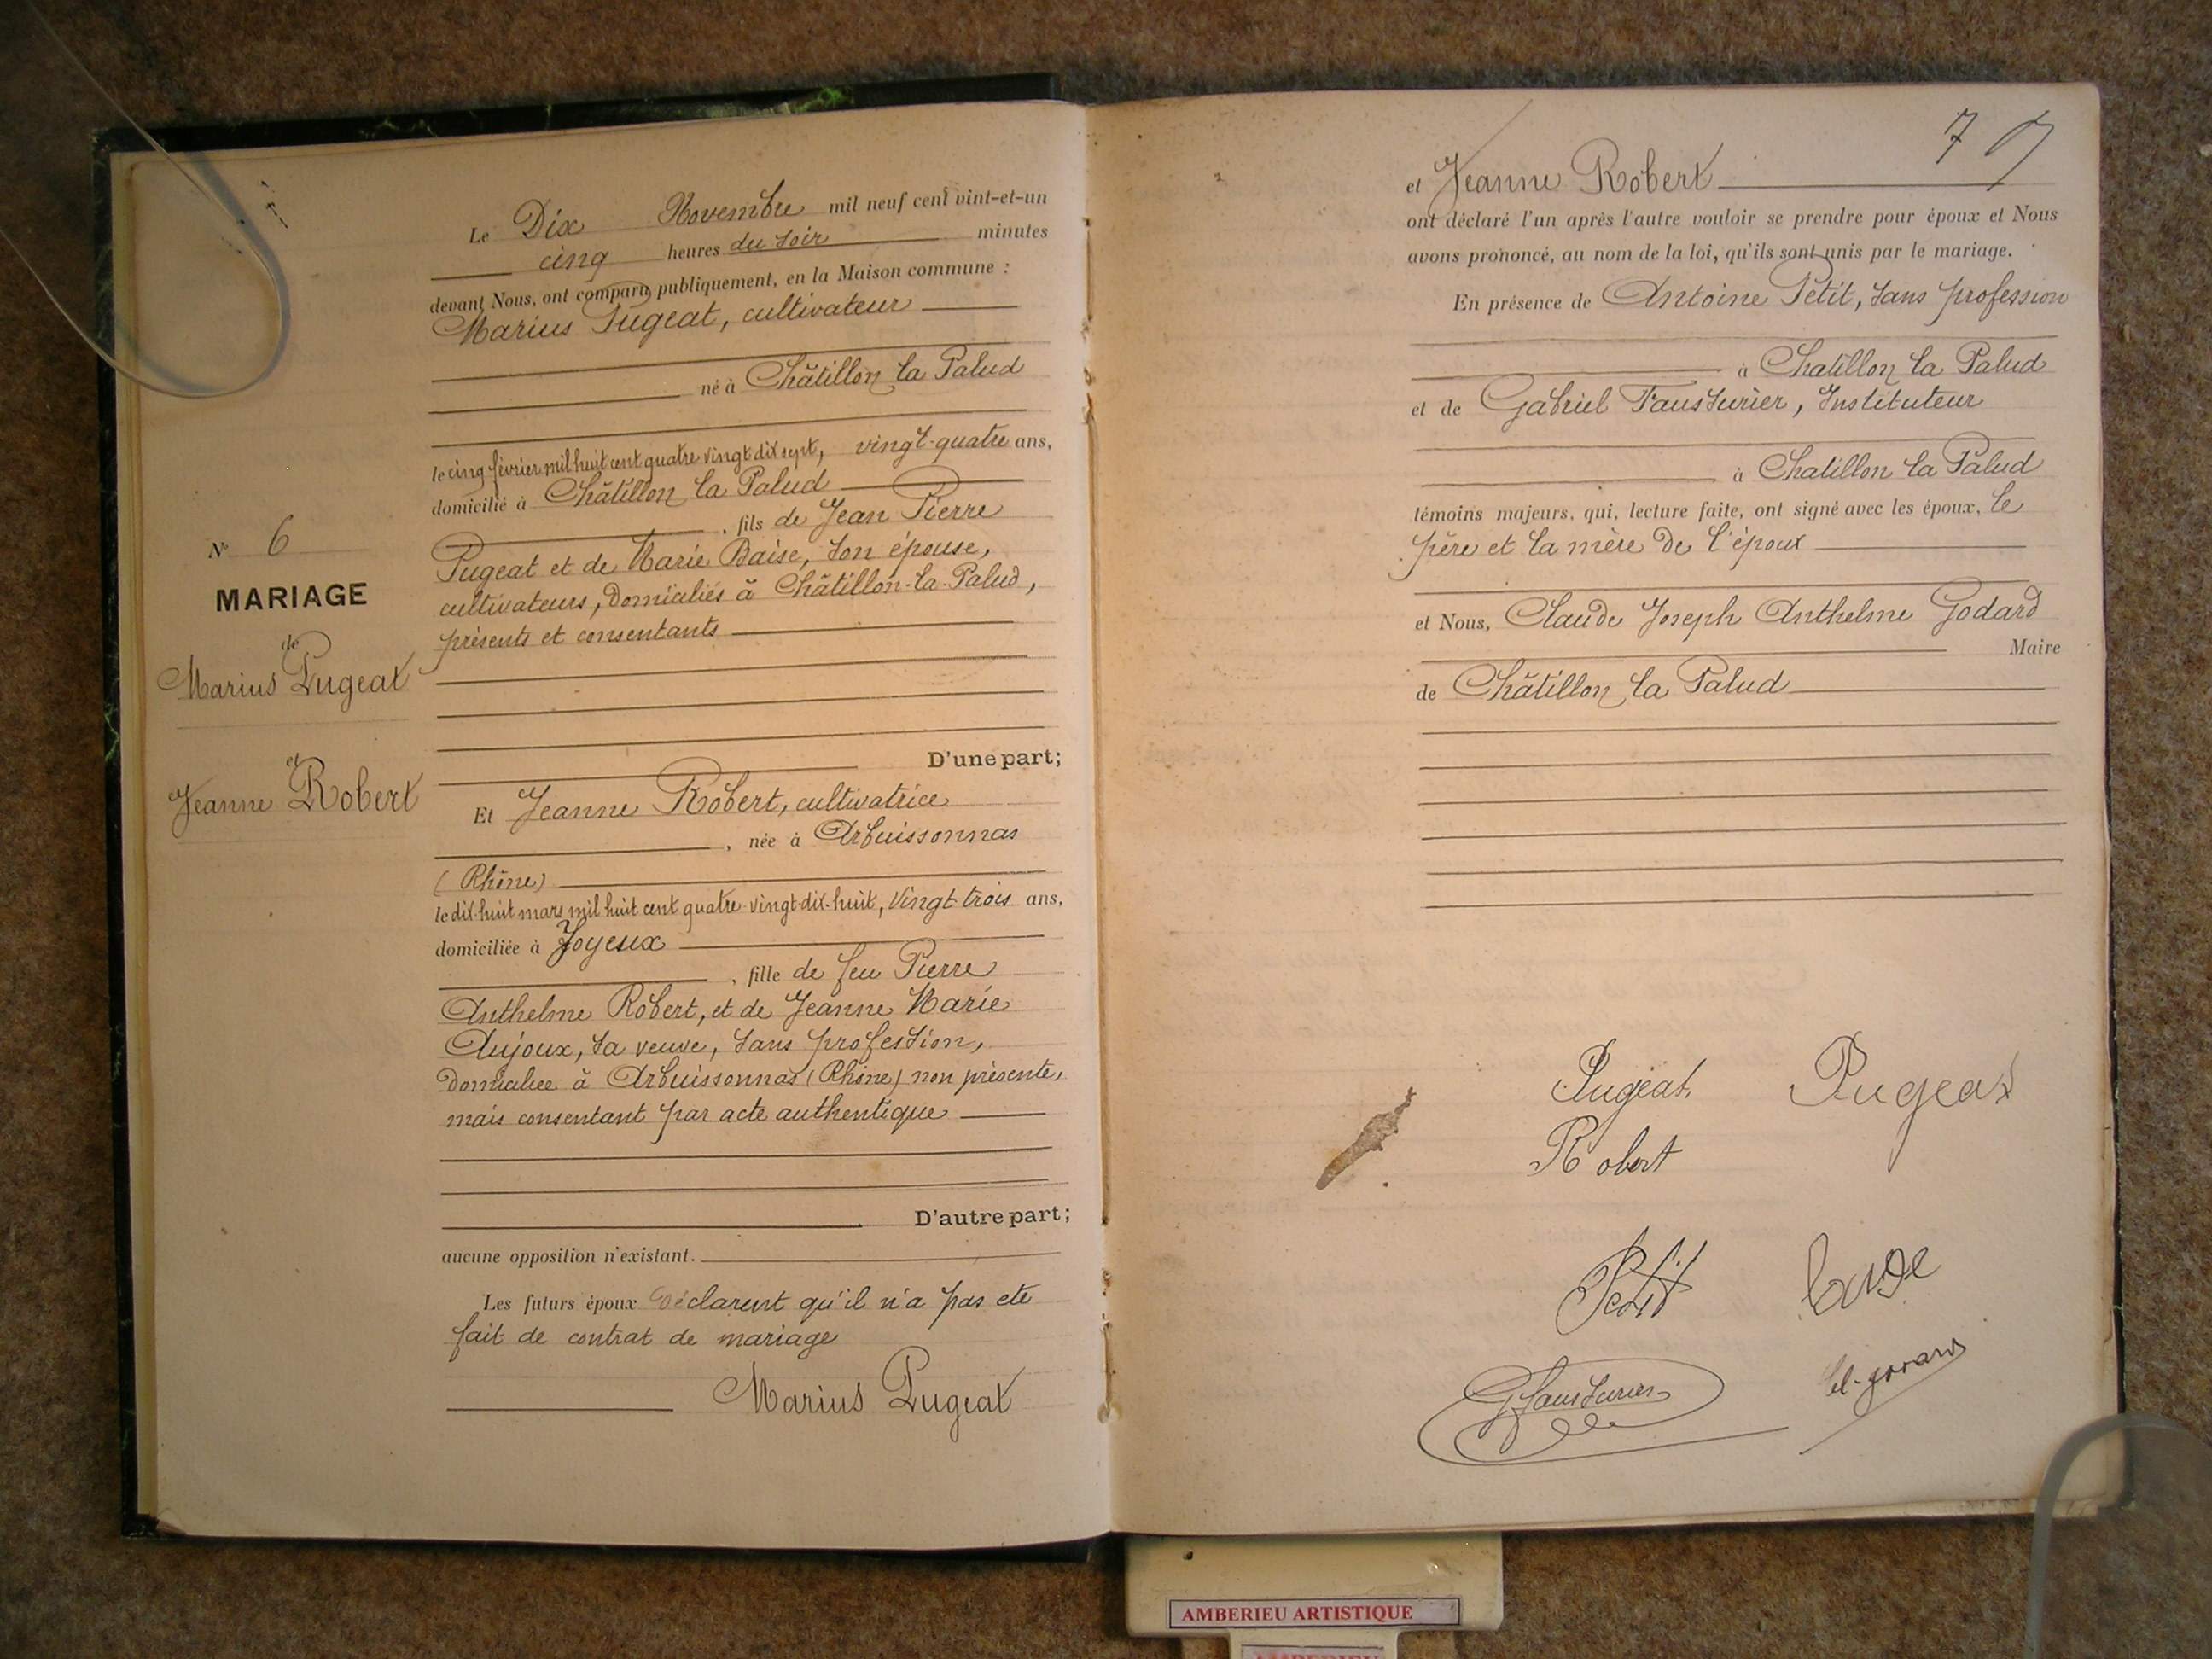 N° 6
MARIAGE
de
Marius Pugeat
et
Jeanne Robert
Le Dix Novembre mil neuf cent vint-et-un
cinq heures du soir minutes
devant Nous, ont comparu publiquement, en la Maison commune :
Marius Pugeat, cultivateur
né à Châtillon la Palud
le cinq février mil huit cent quatre vingt dix sept, vingt-quatre ans,
domicilié à Châtillon la Palud
, fils de Jean Pierre
Pugeat et de Marie Baise, son épouse,
cultivateurs, domiciliés à Châtillon-la-Palud,
présents et consentants
D'une part;
Et Jeanne Robert, cultivatrice
, née à Arbuissonnas
(Rhône)
le dix-huit mars mil huit cent quatre-vingt-dix-huit, Vingt-trois ans,
domiciliée à Joyeux
, fille de feu Pierre
Anthelme Robert, et de Jeanne Marie
Aujoux, sa veuve, sans profession,
domiciliée à Arbuissonnas (Rhône) non présente,
mais consentant par acte authentique
D'autre part;
aucune opposition n'existant.
Les futurs époux déclarent qu'il n'a pas eté
fait de contrat de mariage
Marius Pugeat
7
et Jeanne Robert
ont déclaré l'un après l'autre vouloir se prendre pour époux et Nous
avons prononcé, au nom de la loi, qu'ils sont unis par le mariage.
En présence de Antoine Petit, sans profession
à Chatillon la Palud
et de Gabriel Fausturier, Instituteur
à Chatillon la Palud
témoins majeurs, qui, lecture faite, ont signé avec les époux, le
père et la mère de l'époux
et Nous, Claude Joseph Anthelme Godard
Maire
de Châtillon la Palud
Pugeat. Pugeat
Robert
Petit
G Fausturier
AMBERIEU ARTISTIQUE